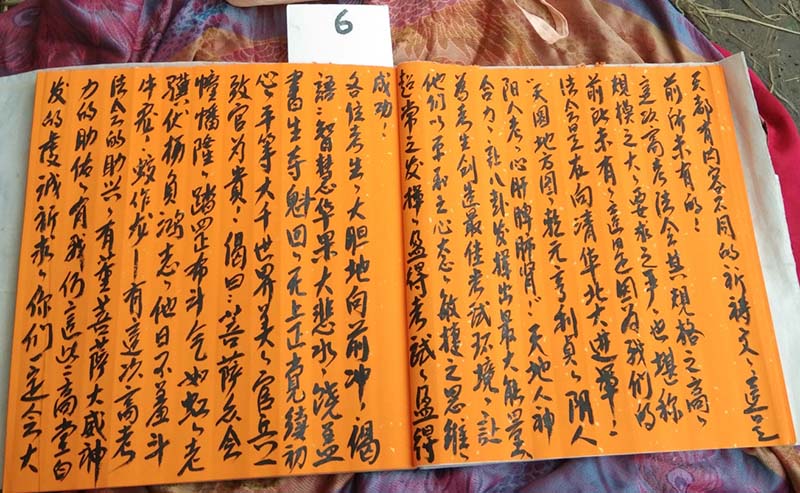 6
天都有内容不同的祈祷文、這是
前所未有的！
這次高考法会其規格之高、
規模之大、要求之严、也堪称
前所未有、這是因为我们的
法会是在向清华北大进軍！
“天圆地方图、乾元亨利贞、阴人
阳人考、心肝脾肺肾”、天地人神
合力、让八卦发挥出最大能量、
为考生创造最佳考試环境、让
他们以平和之心态、敏捷之思维、
超常之发挥、赢得考試、赢得
成功！
各位考生、大胆地向前冲、偈
語：智慧华果大悲水、饶益
書生夺魁回、无上正觉续初
心、平等大千世界美、官兵一
致官为貴、偈曰：菩萨会
幢幡隆、踏罡布斗气如虹、老
骥伏枥负鸿志、他日不羞斗
牛宫、蛟作龙！有這次高考
法会的助兴、有菩萨大威神
力的助佑、有我们這些高堂白
发的虔诚祈求、你们一定会大